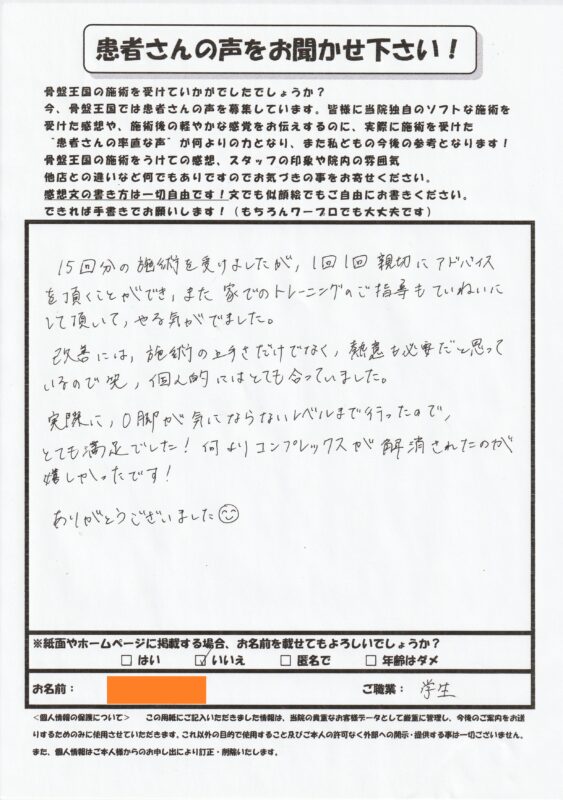 患者さんの声をお聞かせ下さい！
骨盤王国の施術を受けていかがでしたでしょうか？
今、骨盤王国では患者さんの声を募集しています。皆様に当院独自のソフトな施術を
受けた感想や、施術後の軽やかな感覚をお伝えするのに、実際に施術を受けた
“患者さんの率直な声”が何よりの力となり、また私どもの今後の参考となります！
骨盤王国の施術をうけての感想、スタッフの印象や院内の雰囲気
他店との違いなど何でもありですのでお気づきの事をお寄せください。
感想文の書き方は一切自由です！文でも似顔絵でもご自由にお書きください。
できれば手書きでお願いします！（もちろんワープロでも大丈夫です）
15回分の施術を受けましたが、1回1回 親切に アドバイス
を頂くことができ、また 家でのトレーニングのご指導も ていねいに
して頂いて、やる気がでました。
改善には、施術の上手さだけでなく、熱意も必要だと思って
いるので笑、個人的にはとても合っていました。
実際に、O脚が気にならないレベルまで行ったので、
とても満足でした！ 何よりコンプレックスが 解消されたのが
嬉しかったです！
ありがとうございました
※紙面やホームページに掲載する場合、お名前を載せてもよろしいでしょうか？
□ はい ☑ いいえ □ 匿名で □ 年齢はダメ
お名前： ご職業： 学生
＜個人情報の保護について＞ この用紙にご記入いただきました情報は、当院の貴重なお客様データとして厳重に管理し、今後のご案内をお送
りするためのみに使用させていただきます。これ以外の目的で使用すること及びご本人の許可なく外部への開示・提供する事は一切ございません。
また、個人情報はご本人様からのお申し出により訂正・削除いたします。